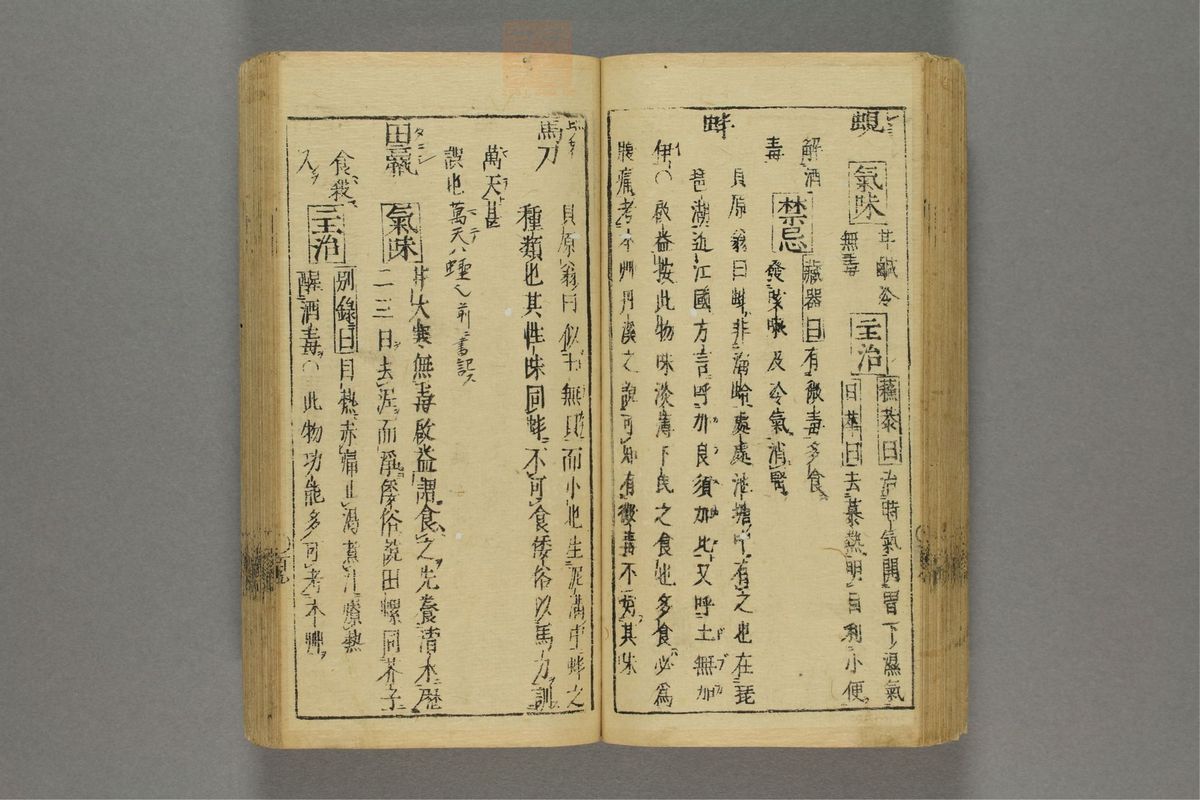 蜆
氣味 甘鹹冷
無毒
主治 蘇恭曰治時氣開胃下濕氣
日華曰去暴熱明目利小便
解酒
毒
禁忌 藏器曰有微毒多食
發嗽及冷氣消腎
蚌
貝原翁曰蚌非海蛤處處池塘中有之也在琵
琶湖近江國方言呼加良須加比又呼土無加
伊〇啟益按此物味淡薄下民之食也多食必為
腹痛考本艸丹溪之說可知有微毒不好其味
馬刀
貝原翁曰似而小也生泥溝中蚌之
種類也其性味同蚌不可食倭俗以馬刀訓
萬天甚
誤也萬天ハ蟶也前ニ書記ス
田蠃
氣味 甘大寒無毒啟益謂食之先養清水歷
二三日去泥而淨倭俗說田螺同芥子
食殺
人
主治 別錄曰目熱赤痛止渴煮汁療熱
醒酒毒〇此物功能多可考本艸